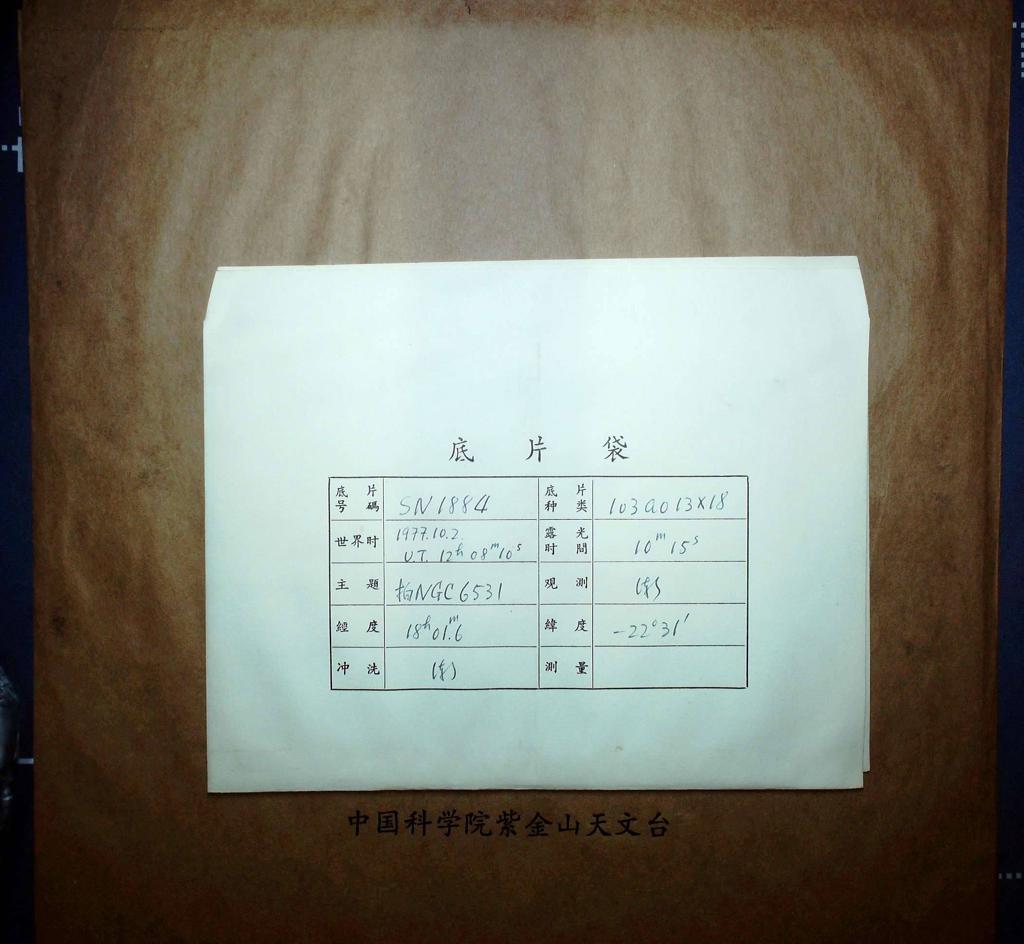 底 片 袋
底片号碼 SN1884 底片种类 103aO 13×18
世界时 1977.10.2. U.T. 12ʰ08ᵐ10ˢ 露光时間 10ᵐ15ˢ
主題 拍NGC6531 观測
經度 18ʰ01ᵐ.6 緯度 -22°31′
冲洗 測量
中国科学院紫金山天文台